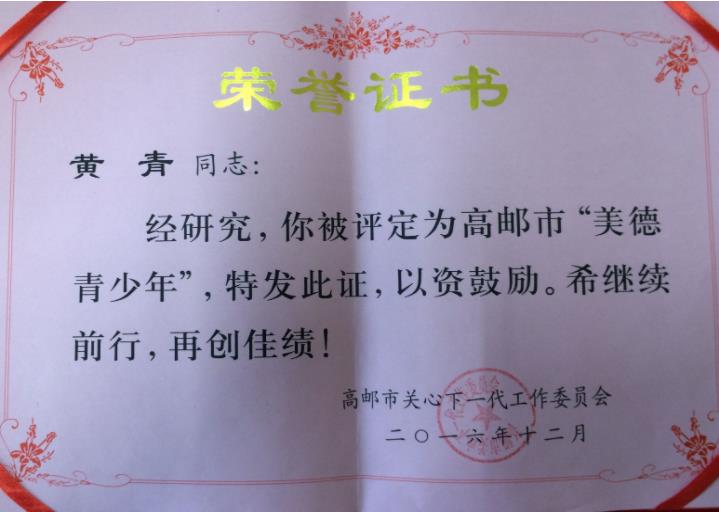 荣誉证书
黄 青 同志：
经研究，你被评定为高邮市“美德
青少年”，特发此证，以资鼓励。希继续
前行，再创佳绩！
高邮市关心下一代工作委员会
二〇一六年十二月